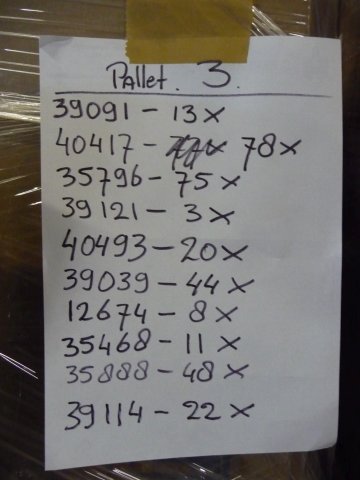 Pallet. 3.
39091 - 13x
40417 - 78x
35796 - 75x
39121 - 3x
40493 - 20x
39039 - 44x
12674 - 8x
35468 - 11x
35888 - 48x
39114 - 22x